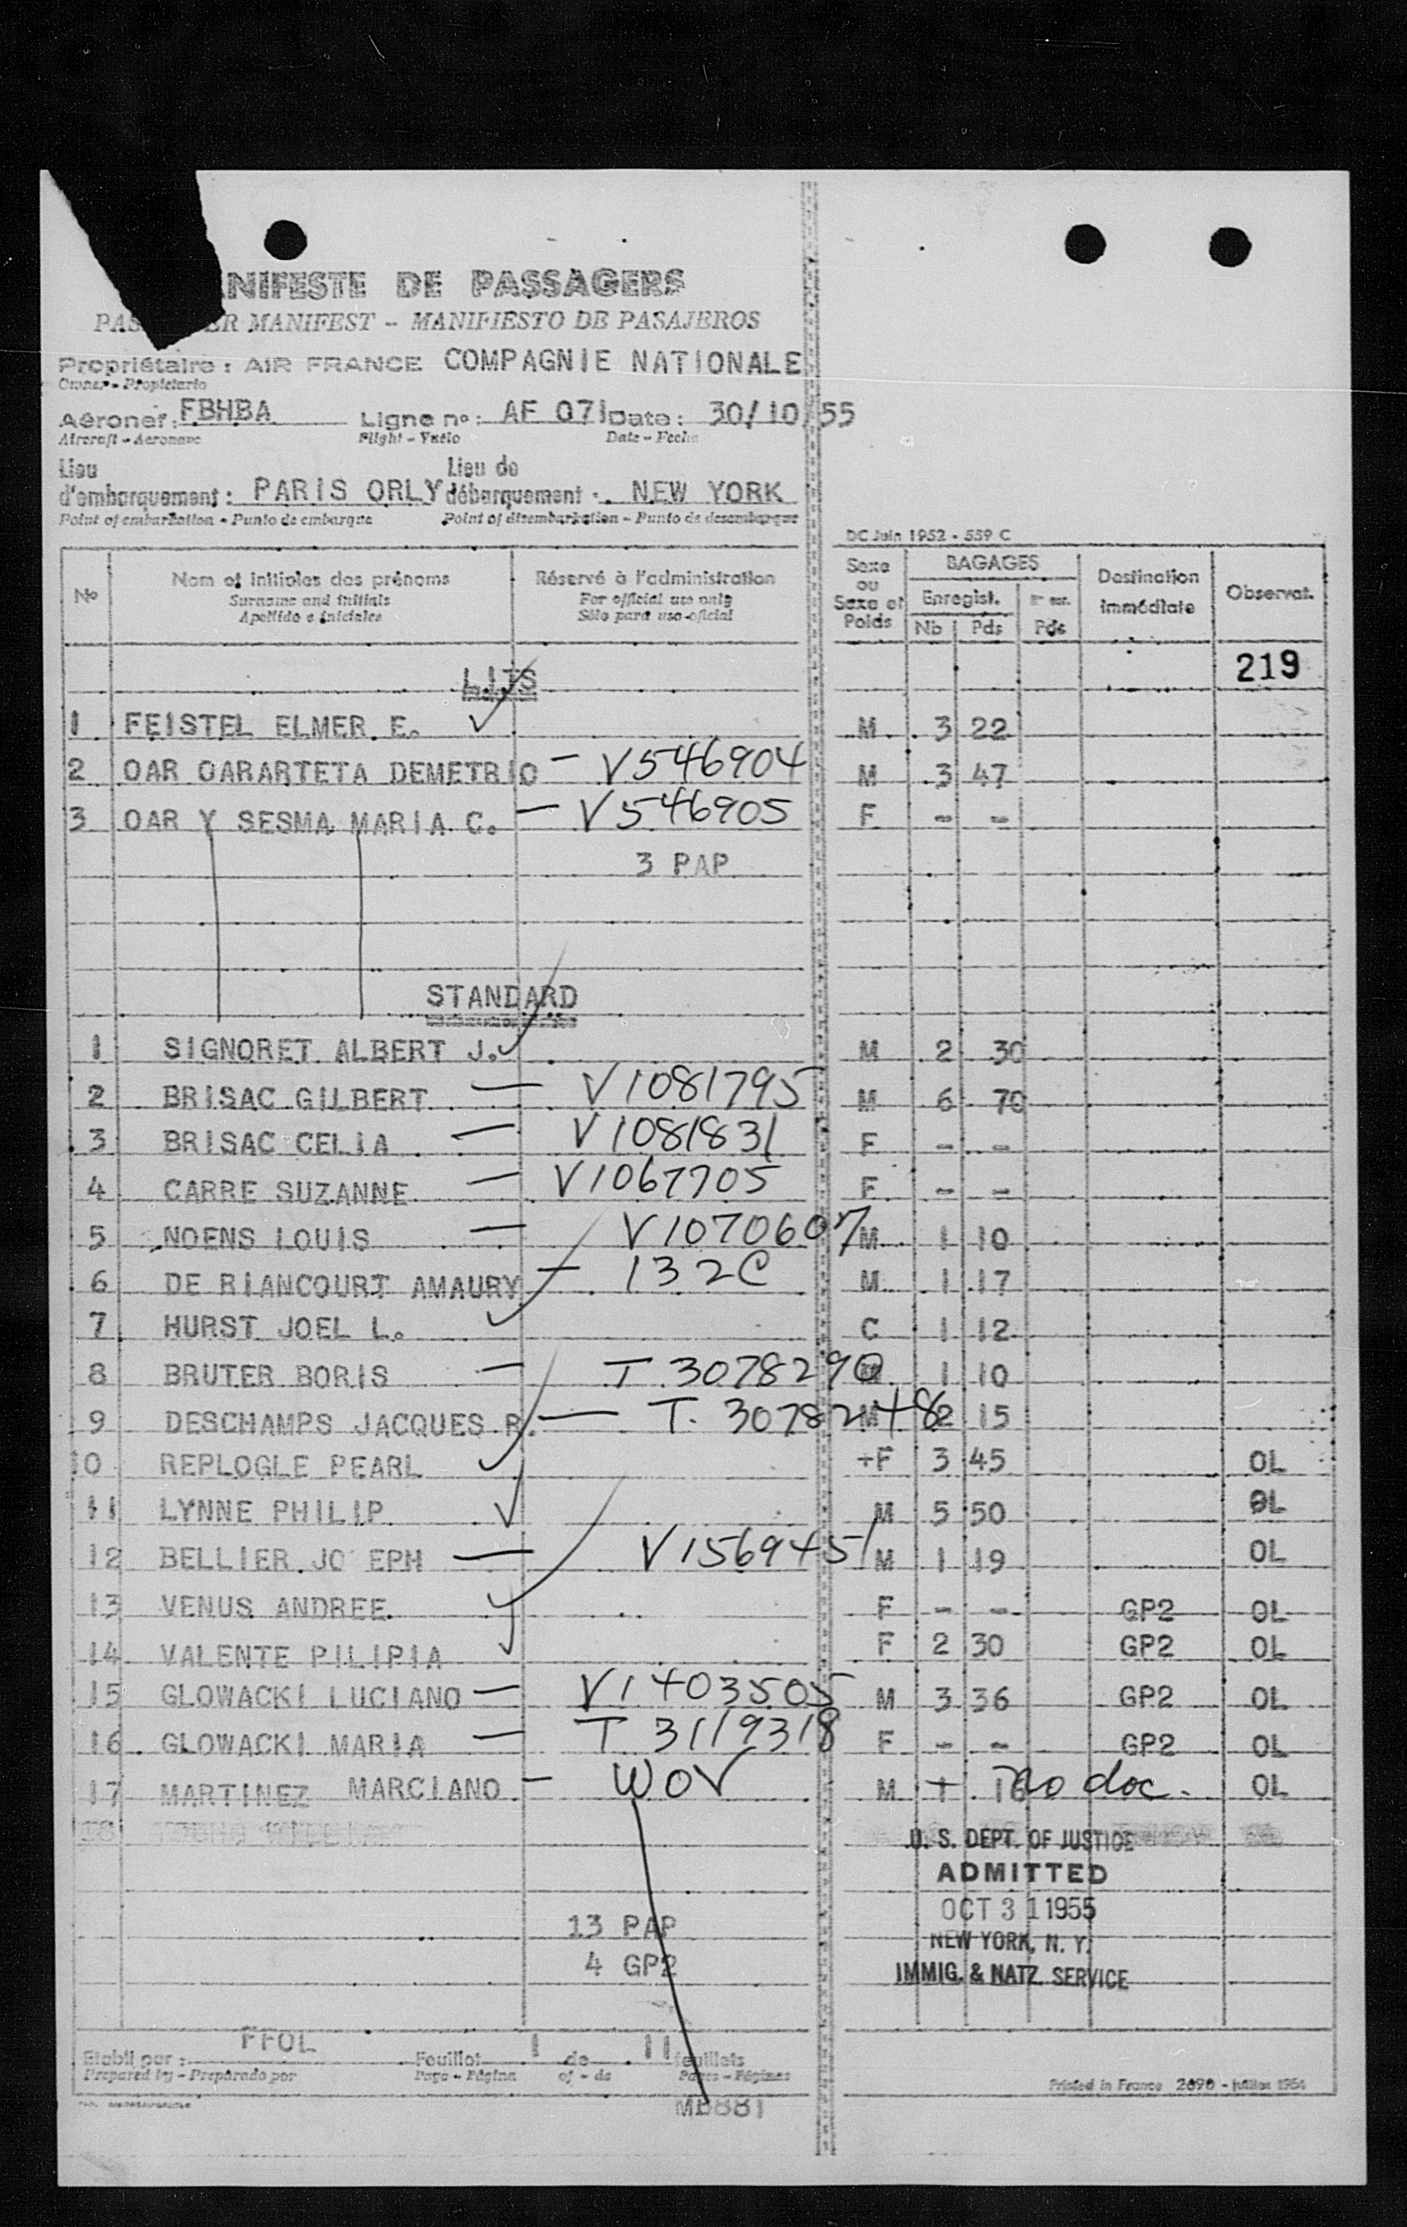 NIFESTE DE PASSAGERS
PAS ER MANIFEST - MANIFIESTO DE PASAJEROS
Propriétaire : AIR FRANCE COMPAGNIE NATIONALE
Owner - Propietario
Aéronef : FBHBA Ligne n° : AF 071 Date : 30/10/55
Aircraft - Aeronave Flight - Vuelo Date - Fecha
Lieu d'embarquement : PARIS ORLY Lieu de débarquement : NEW YORK
Point of embarkation - Punto de embarque Point of disembarkation - Punto de desembarque
DC Juin 1952 - 559 C
N° Nom et initiales des prénoms Réservé à l'administration Sexe ou Sexe et Poids BAGAGES Destination immédiate Observat.
Surname and initials For official use only Enregist.
Apellido e iniciales Sólo para uso oficial Nb Pds Pds
LITS 219
1 FEISTEL ELMER E. M 3 22
2 OAR OARARTETA DEMETRIO - V546904 M 3 47
3 OAR Y SESMA MARIA C. - V546905 F - -
3 PAP
STANDARD
1 SIGNORET ALBERT J. M 2 30
2 BRISAC GILBERT - V1081795 M 6 70
3 BRISAC CELIA - V1081831 F - -
4 CARRE SUZANNE - V1067705 F - -
5 NOENS LOUIS - V1070607 M 1 10
6 DE RIANCOURT AMAURY - 132C M 1 17
7 HURST JOEL L. C 1 12
8 BRUTER BORIS - T 3078290 1 10
9 DESCHAMPS JACQUES R. - T. 3078248 M 2 15
10 REPLOGLE PEARL +F 3 45 OL
11 LYNNE PHILIP M 5 50 OL
12 BELLIER JO EPH - V1569451 M 1 19 OL
13 VENUS ANDREE F - - GP2 OL
14 VALENTE PILIPIA F 2 30 GP2 OL
15 GLOWACKI LUCIANO - V1403505 M 3 36 GP2 OL
16 GLOWACKI MARIA - T 3119318 F - - GP2 OL
17 MARTINEZ MARCIANO - WOV M 1 no doc. OL
U. S. DEPT. OF JUSTICE
ADMITTED
OCT 31 1955
NEW YORK, N. Y.
IMMIG. & NATZ. SERVICE
13 PAP
4 GP2
Etabli par : FFOL Feuillet 1 de 11 feuillets
Prepared by - Preparado por Page - Página of - de Pages - Páginas
Printed in France 2690 - juillet 1954
MB881